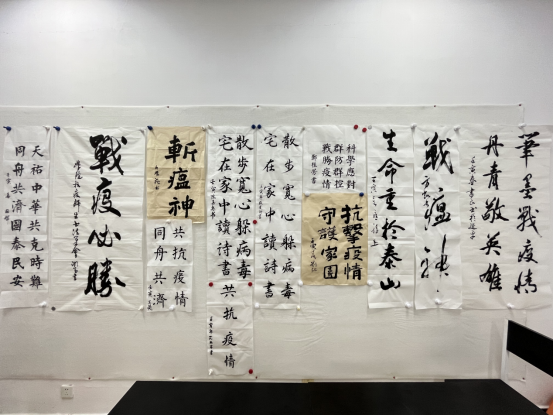 筆墨戰疫情
丹青敬英雄
戰瘟神
生命重於泰山
科學應對
群防群控
戰勝疫情
抗擊疫情
守護家園
散步寬心躲病毒
宅在家中讀詩書
散步寬心躲病毒
宅在家中讀詩書
共抗疫情
斬瘟神
共抗疫情
同舟共濟
戰疫必勝
天祐中華共克時難
同舟共濟國泰民安